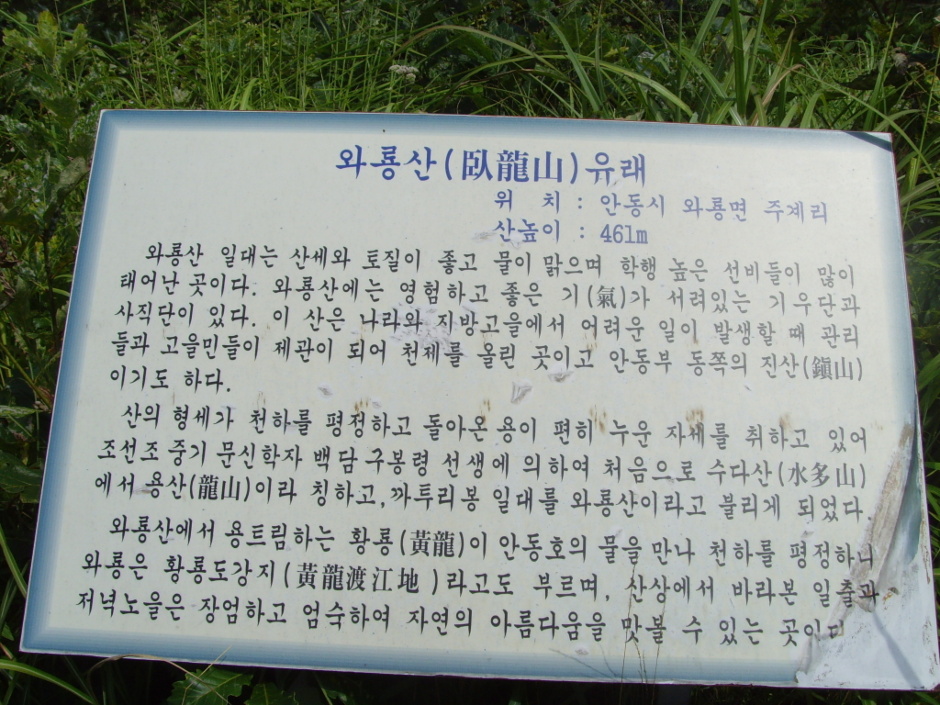 와룡산(臥龍山)유래
위 치 : 안동시 와룡면 주계리
산높이 : 461m
와룡산 일대는 산세와 토질이 좋고 물이 맑으며 학행 높은 선비들이 많이
태어난 곳이다. 와룡산에는 영험하고 좋은 기(氣)가 서려있는 기우단과
사직단이 있다. 이 산은 나라와 지방고을에서 어려운 일이 발생할 때 관리
들과 고을민들이 제관이 되어 천제를 올린 곳이고 안동부 동쪽의 진산(鎭山)
이기도 하다.
산의 형세가 천하를 평정하고 돌아온 용이 편히 누운 자세를 취하고 있어
조선조 중기 문신학자 백담 구봉령 선생에 의하여 처음으로 수다산(水多山)
에서 용산(龍山)이라 칭하고, 까투리봉 일대를 와룡산이라고 불리게 되었다.
와룡산에서 용트림하는 황룡(黃龍)이 안동호의 물을 만나 천하를 평정하니
와룡은 황룡도강지(黃龍渡江地)라고도 부르며, 산상에서 바라본 일출과
저녁노을은 장엄하고 엄숙하여 자연의 아름다움을 맛볼 수 있는 곳이다